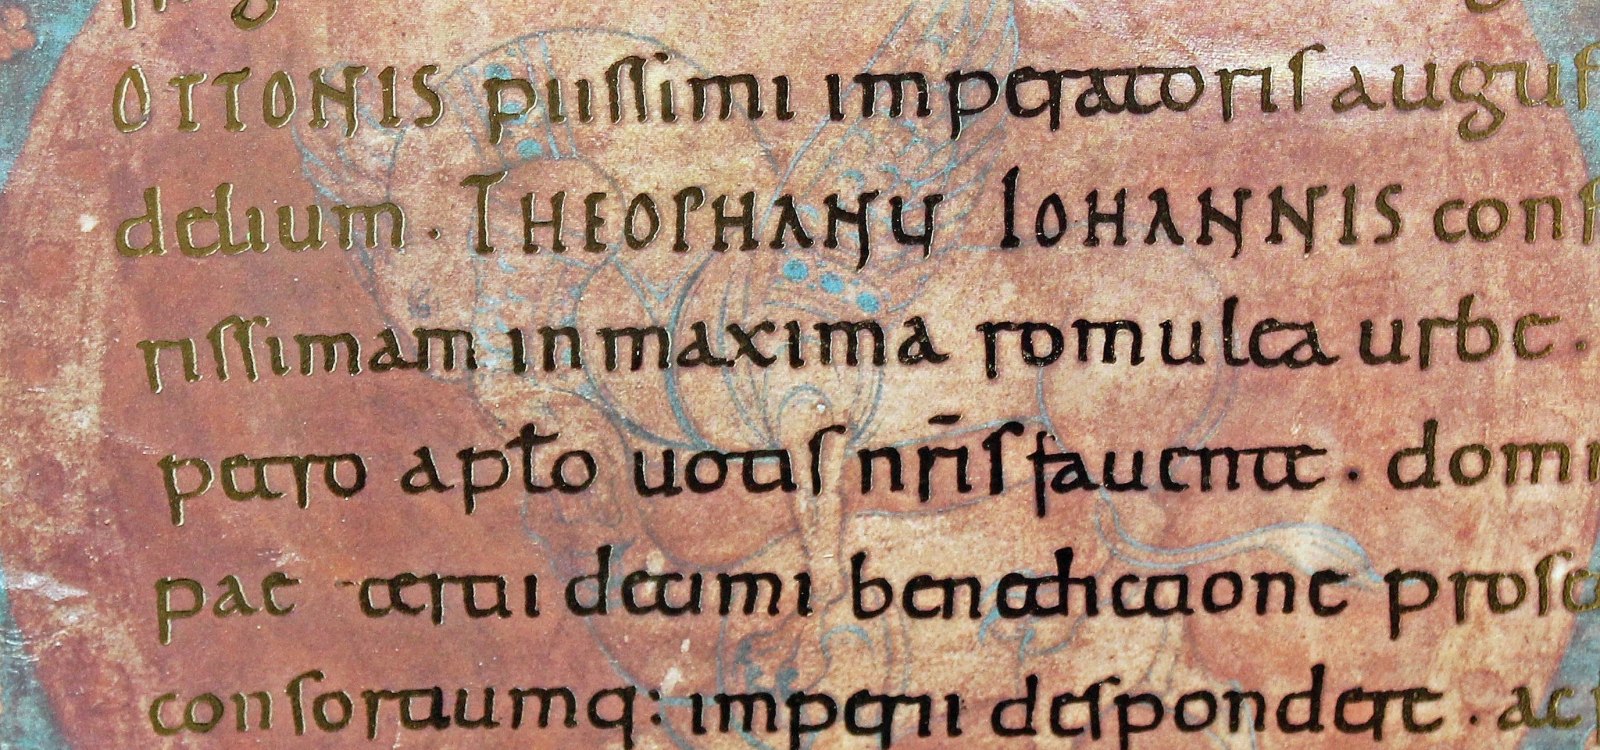 OTTONIS piissimi imperatoris augus
delium · THEOPHANU IOHANNIS cons
rissimam in maxima romulea urbe ·
petro apłto uotis nr̄is fauente · domn
pae tertii decimi benedictione prose
consortiumq: imperii despondere · ac